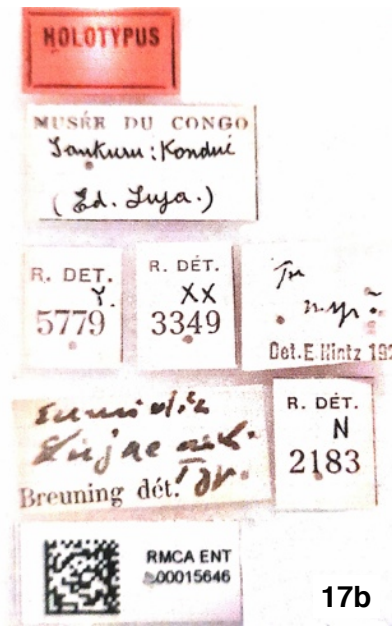 HOLOTYPUS
MUSÉE DU CONGO
Sankuru: Kondué
(Ed. Luja.)
R. DET.
Y.
5779
R. DÉT.
XX
3349
Det. E. Hintz 192
Lujae
Breuning dét.
R. DÉT.
N
2183
RMCA ENT
00015646
17b